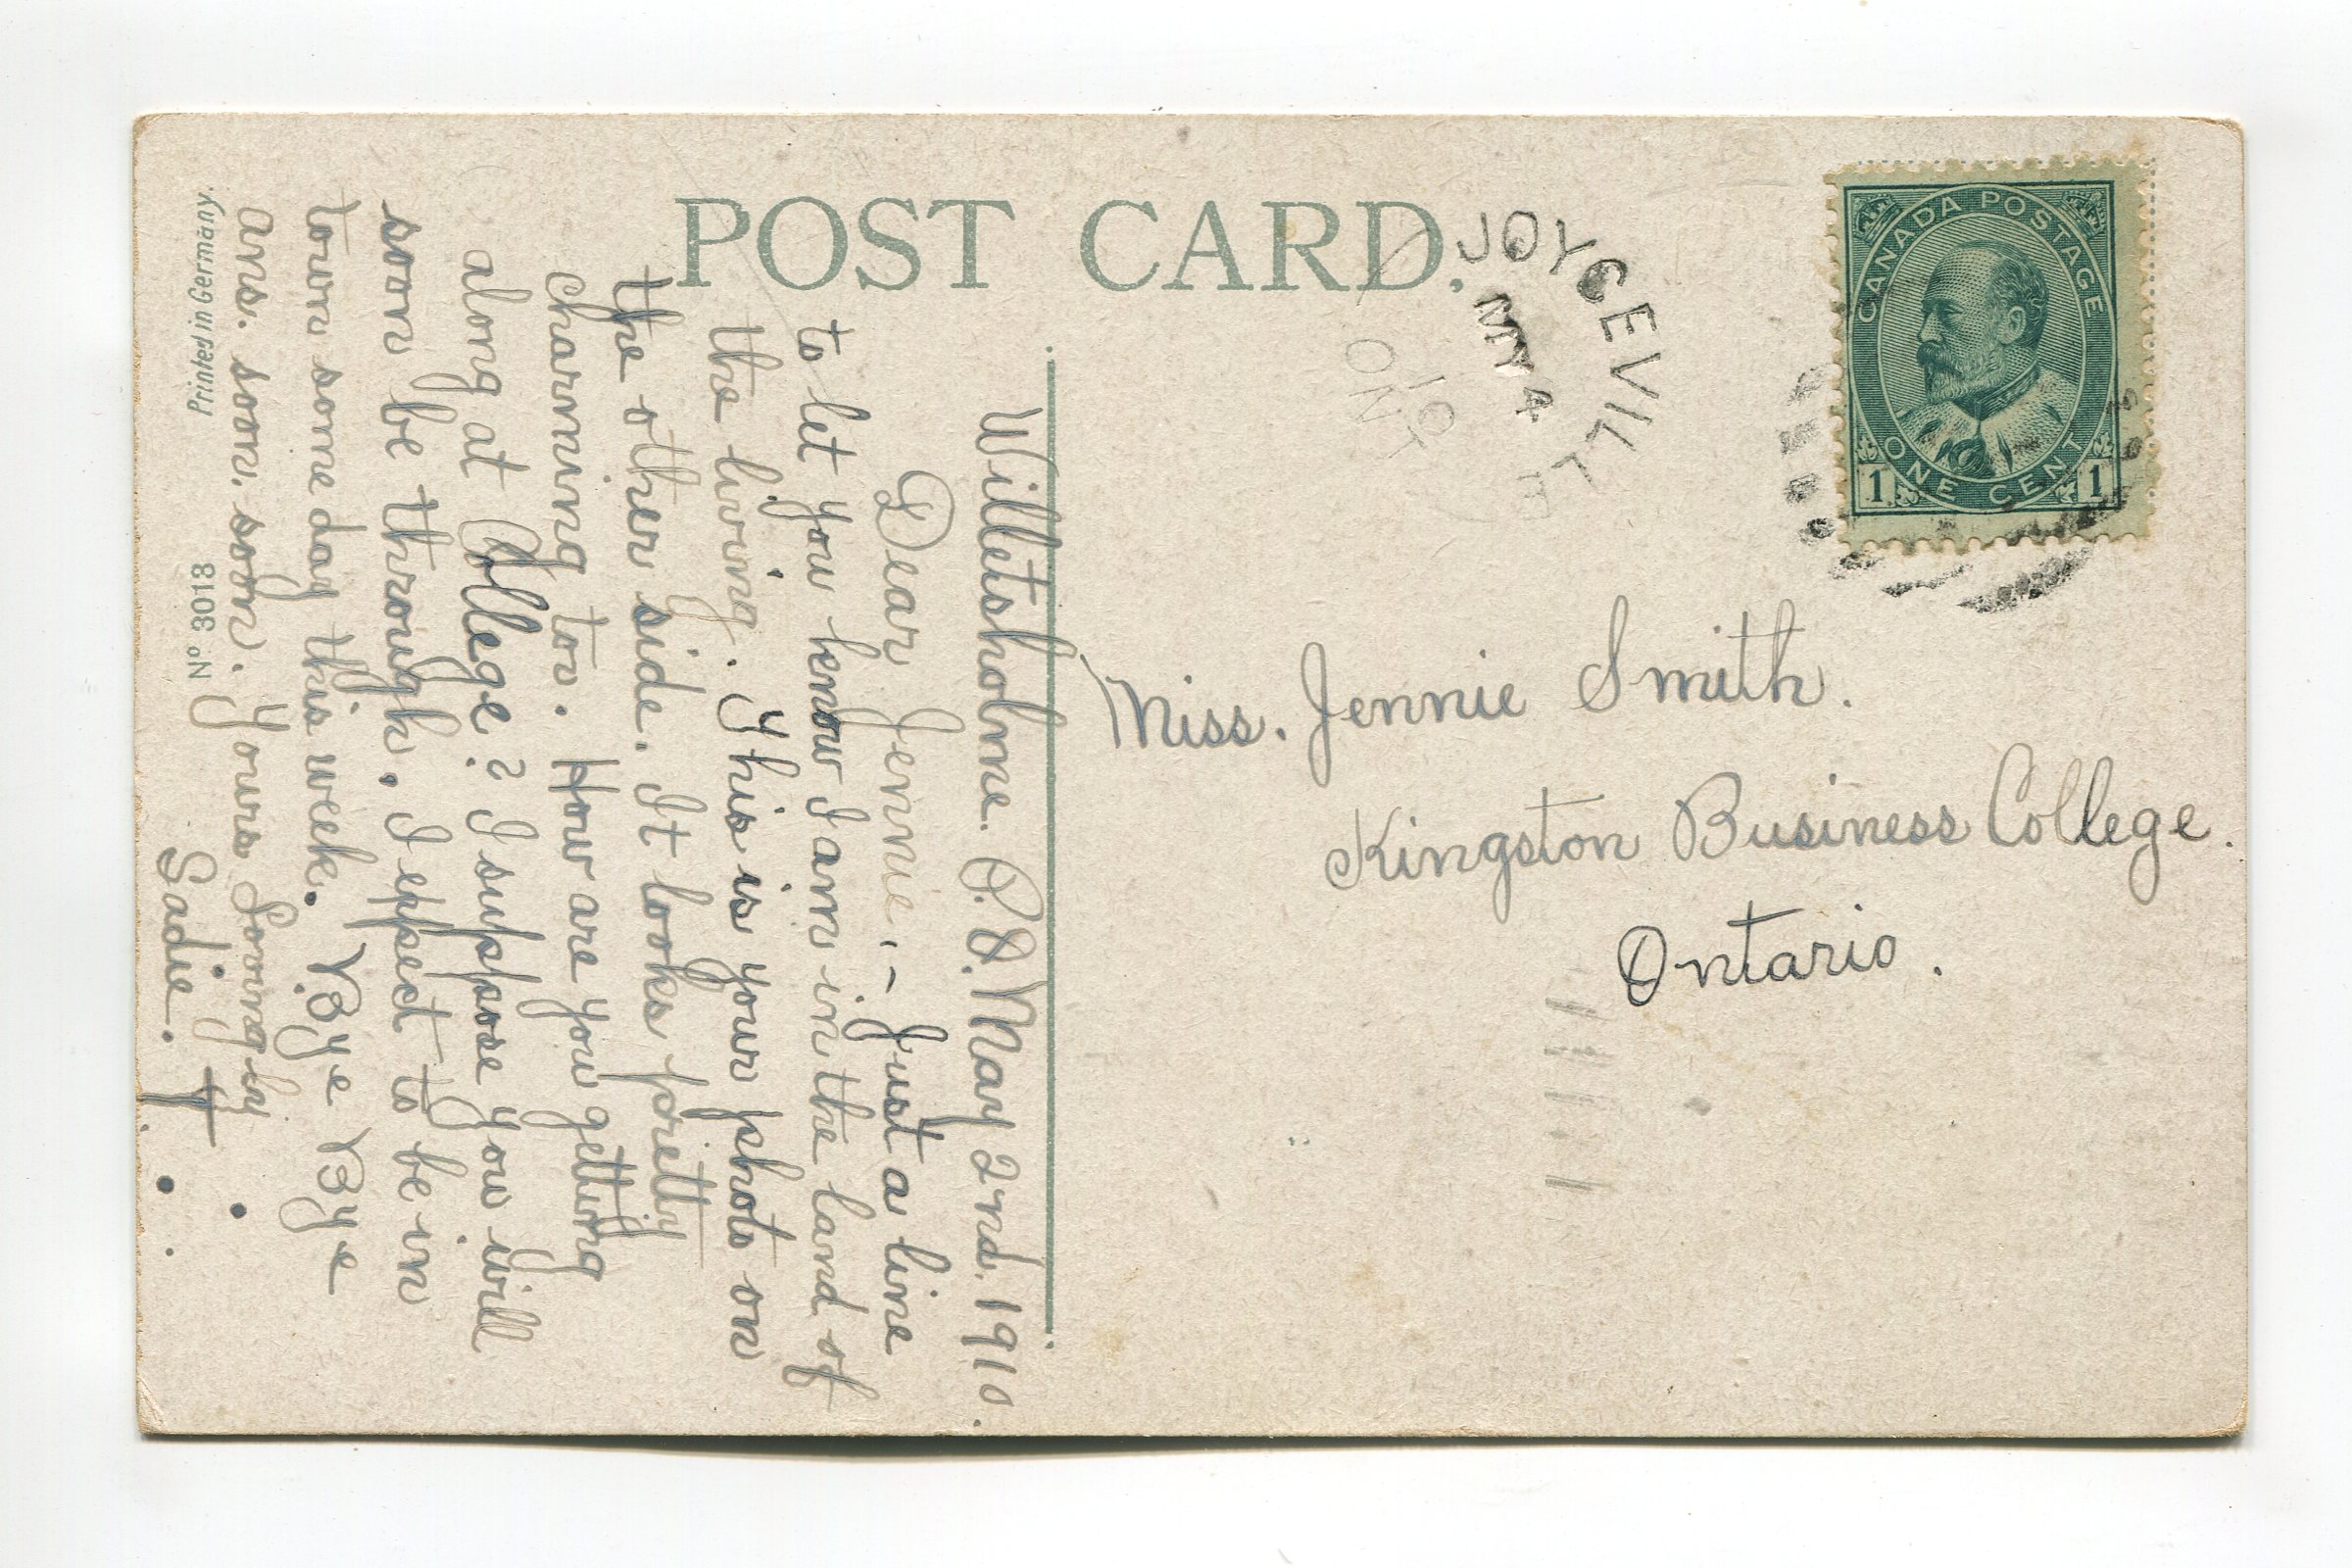 POST CARD.
JOYCEVILLE
MY 4
10
ONT
CANADA POSTAGE
ONE CENT
1 1
Miss. Jennie Smith.
Kingston Business College.
Ontario.
Willetsholme. P.O. May 2nd. 1910.
Dear Jennie:- Just a line
to let you know I am in the land of
the living. This is your photo on
the other side. It looks pretty
charming too. How are you getting
along at College? I suppose you will
soon be through. I expect to be in
town some day this week. Bye Bye
ans. soon. soon. Yours Lovingly
Sadie.
Printed in Germany.
Nº 3013